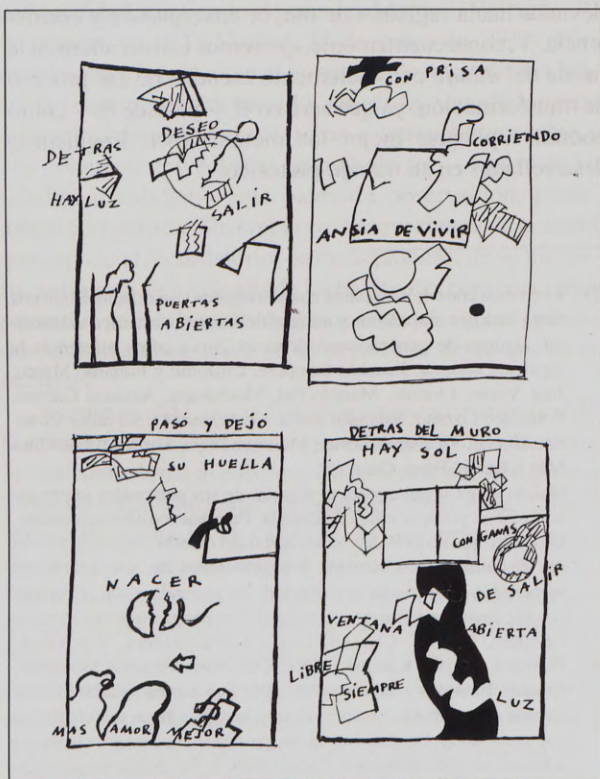 DESEO
DETRAS
HAY LUZ
SALIR
PUERTAS
ABIERTAS
CON PRISA
CORRIENDO
ANSIA DE VIVIR
PASO Y DEJÓ
SU HUELLA
NACER
MAS AMOR MEJOR
DETRAS DEL MURO
HAY SOL
CON GANAS
DE SALIR
VENTANA ABIERTA
LIBRE
SIEMPRE
LUZ